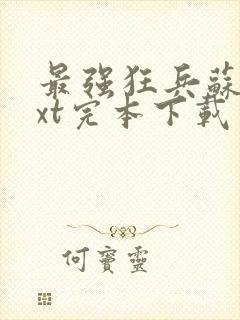 最强狂兵蘇
xt完本下載
何寶靈